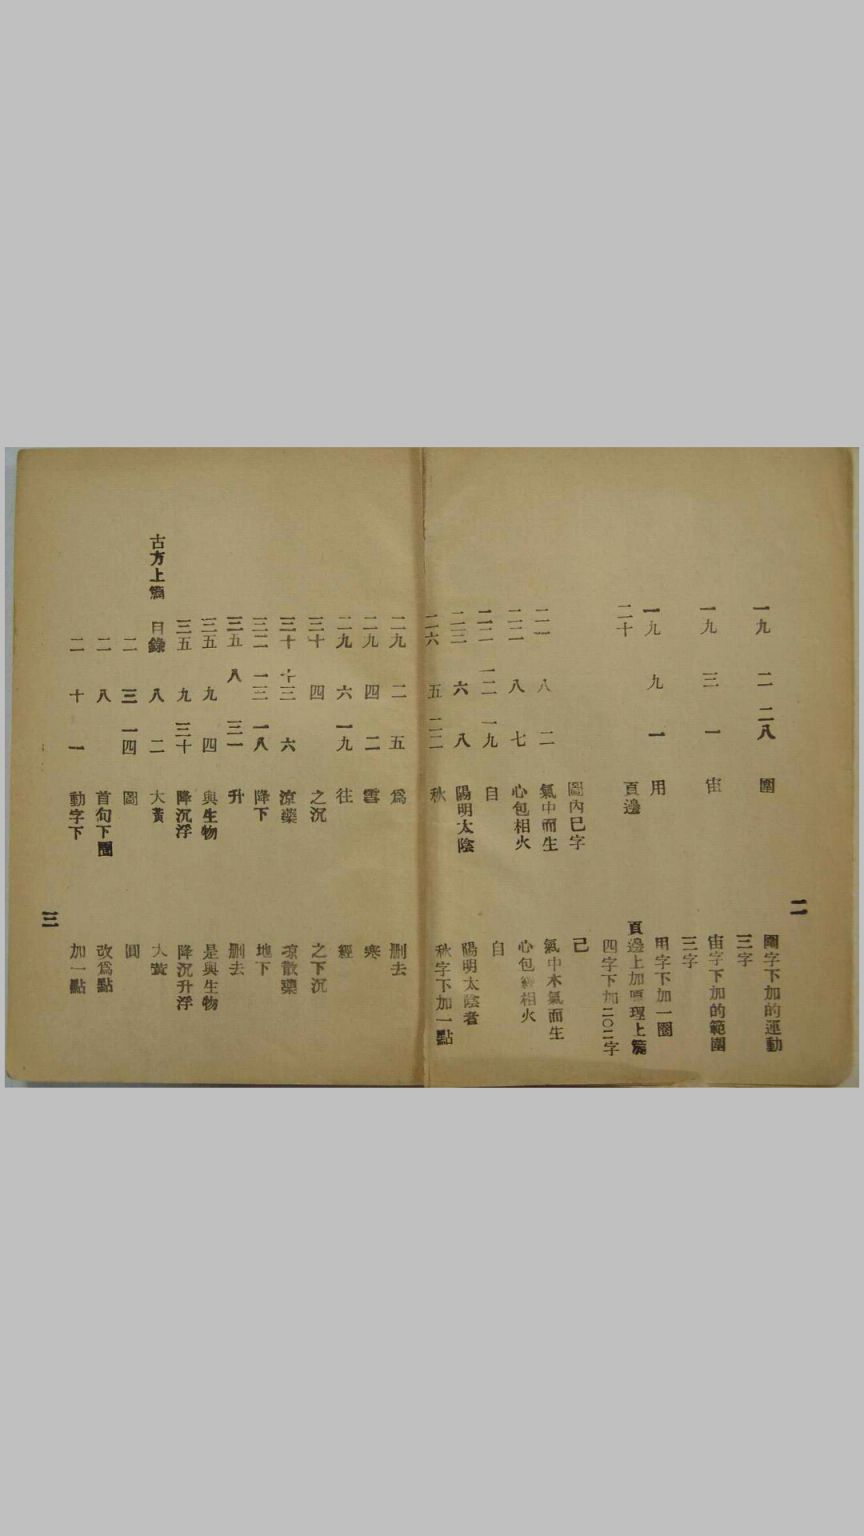 二
一九 二 二八 圍 圍字下加的運動
三字
一九 三 一 宙 宙字下加的範圍
三字
一九 九 一 用 用字下加一圈
二十 頁邊 頁邊上加原理上篇
四字下加二〇二字
圖內巳字 己
二一 八 二 氣中而生 氣中木氣而生
二二 八 七 心包相火 心包經相火
二二 一二 一九 自 自
二三 六 八 陽明太陰 陽明太陰者
二六 五 二二 秋 秋字下加一點
二九 二 五 爲 刪去
二九 四 二 雲 寒
二九 六 一九 往 經
三十 四 之沉 之下沉
三十 十三 六 涼藥 涼散藥
三二 一三 一八 降下 地下
三五 八 三一 升 刪去
三五 九 四 與生物 是與生物
三五 九 三十 降沉浮 降沉升浮
古方上篇 目錄 八 二 大黃 大黃
二 三 一四 圖 圓
二 八 首句下圈 改爲點
二 十 一 動字下 加一點
三